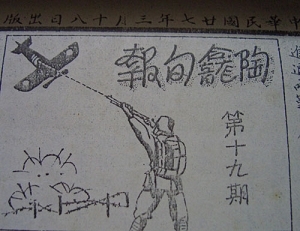 中華民國廿七年三月十八日出版
陶龕旬報
第十九期